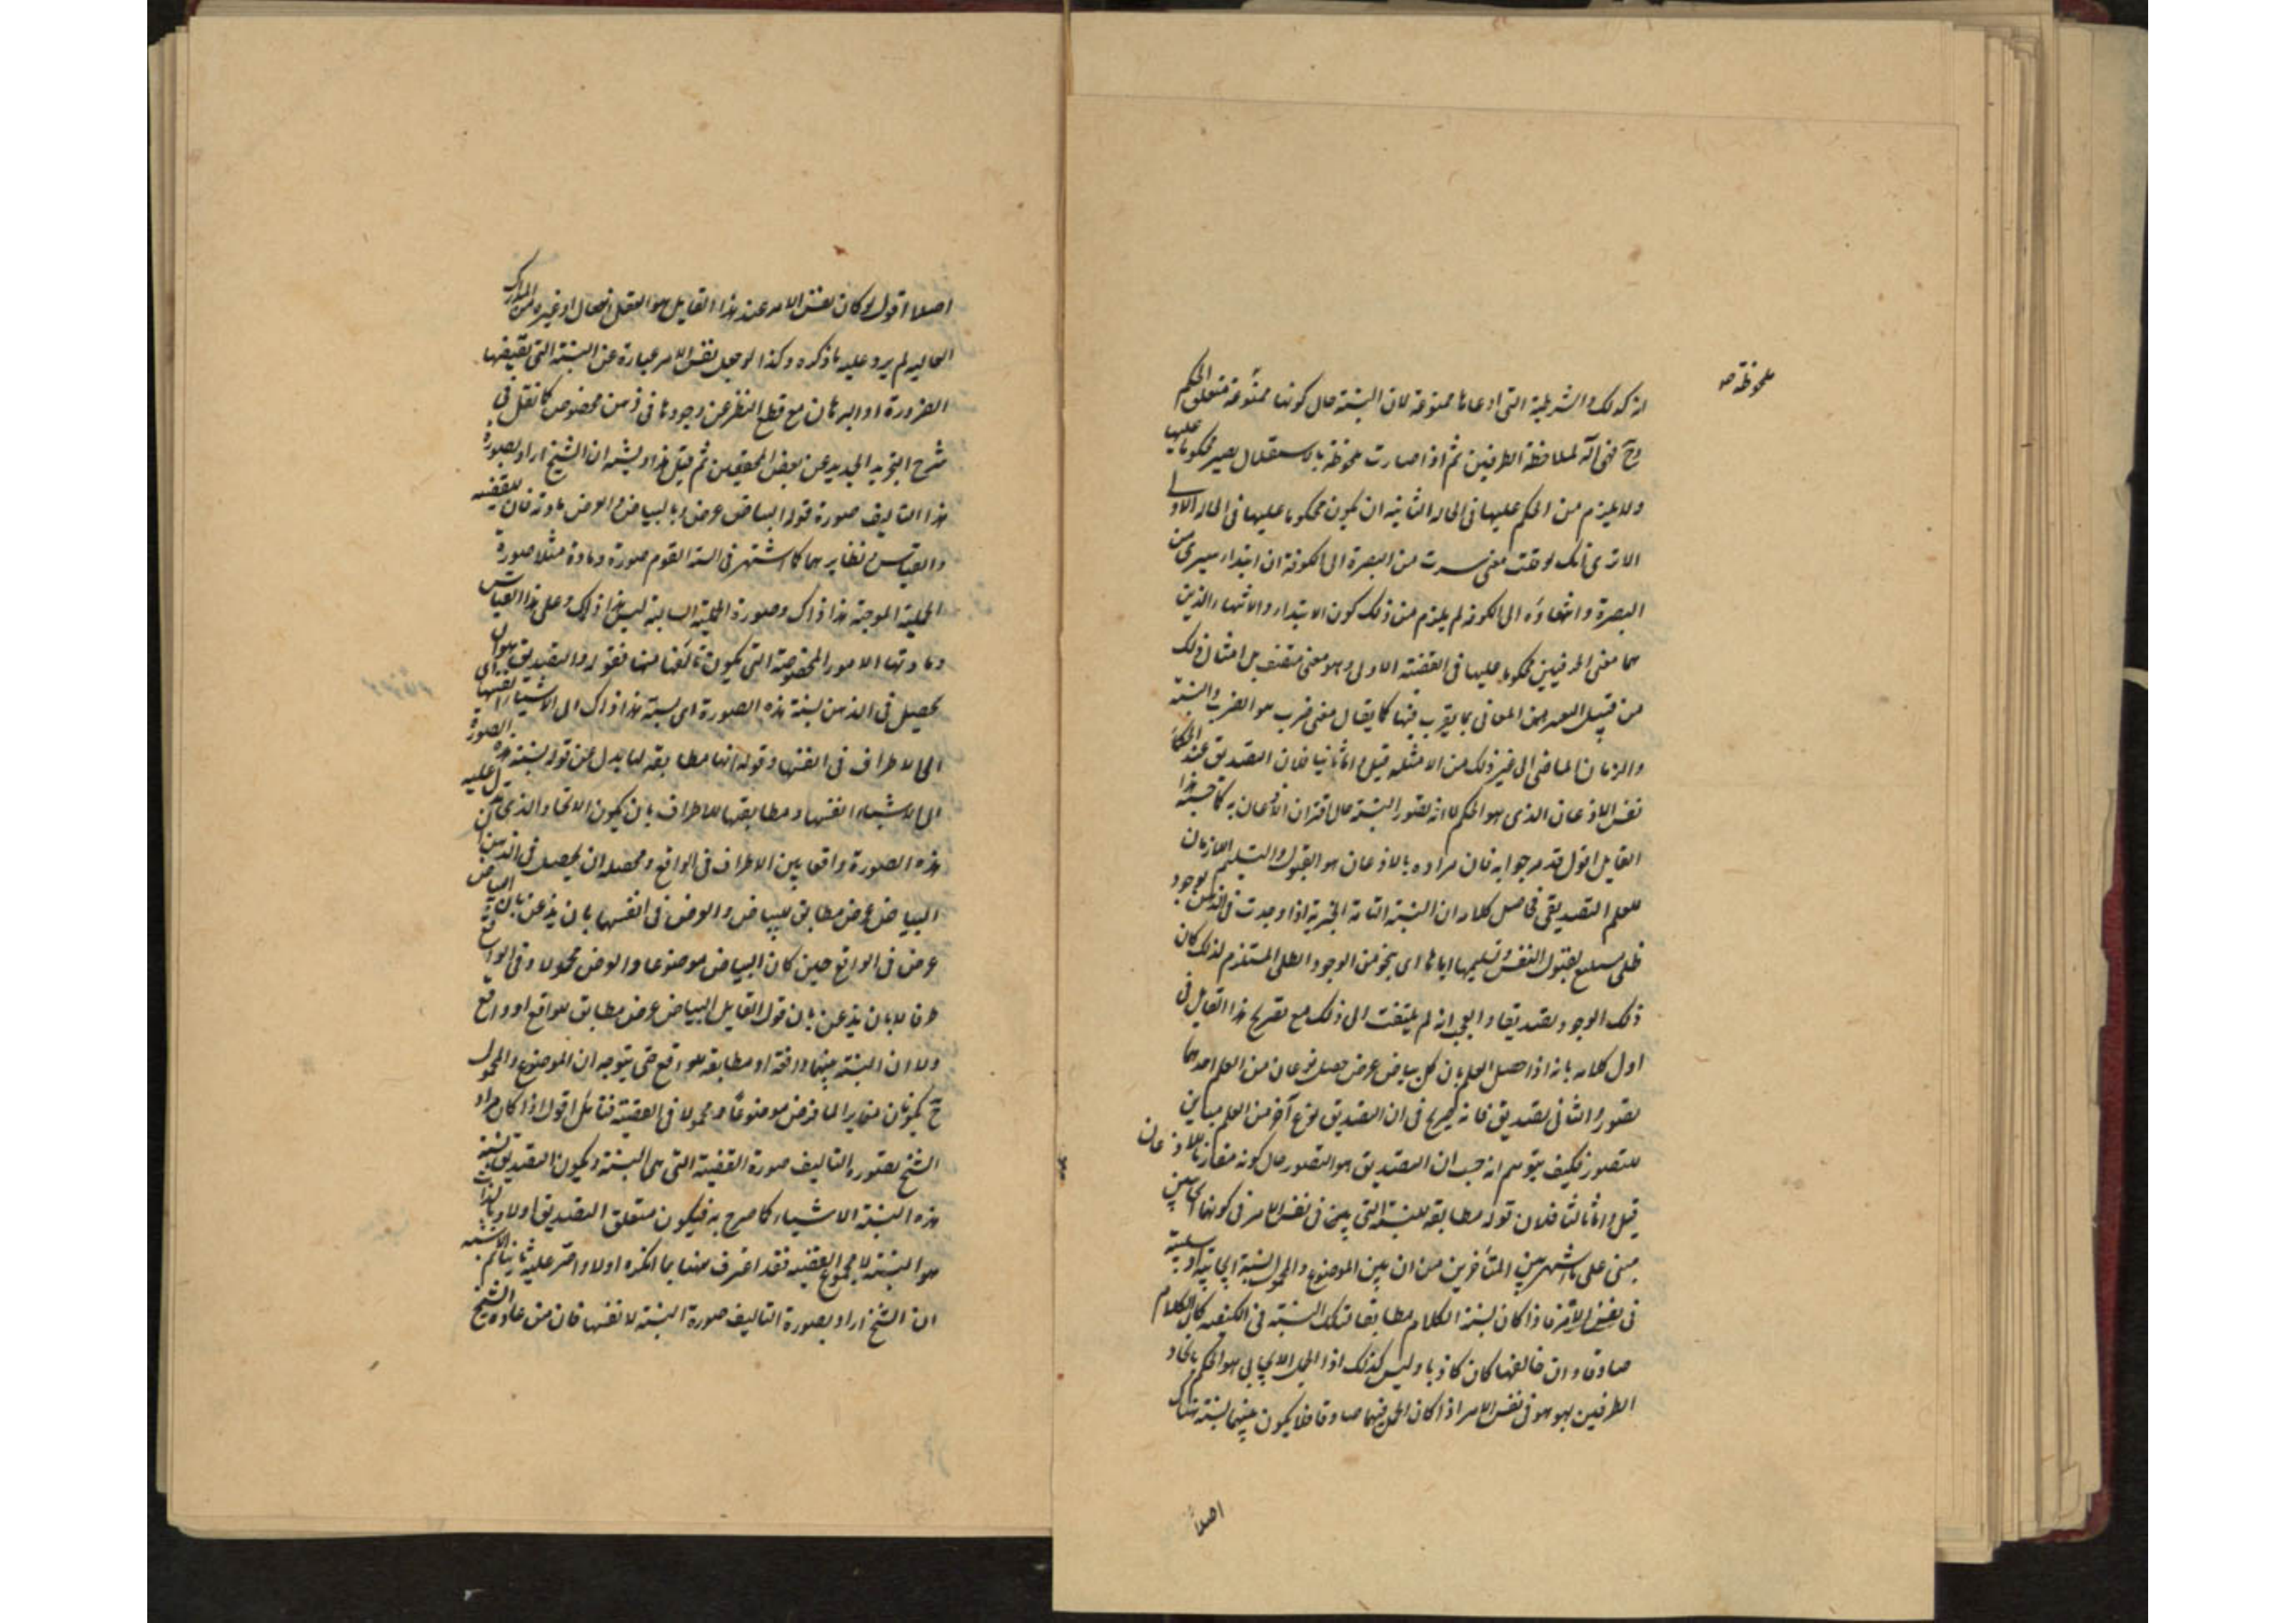 ملحوظة صہ
انه كذلك والشرطية التى ادعاها ممنوعة لان النسبة حال كونها ممنوعة متعلق الحكم
وح فهى آلة لملاحظة الطرفين ثم اذا صارت ملحوظة بالاستقلال يصير محكوما عليها
ولا يلزم من الحكم عليها فى الحالة الثانية ان يكون محكوما عليها فى الحالة الاولى
الا ترى انك لو قلت معنى سرت من البصرة الى الكوفة ان ابتداء سيرى من
البصرة وانتهاؤه الى الكوفة لم يلزم من ذلك كون الابتداء والانتهاء الذين
هما معنى الحرفين محكوما عليها فى القضية الاولى وهو معنى بل امثال ذلك
من قبيل التعبير عن المعانى بما يقرب منها كما يقال معنى ضرب هو الضرب والنسبة
والزمان الماضى الى غير ذلك من الامثلة قيل واما ثانيا فان التصديق عند الحكماء
نفس الاذعان الذى هو الحكم لا انه تصور النسبة حال اقتران الاذعان به كما حسبه هذا
القايل اقول قد مر جوابه فان مراده بالاذعان هو القبول والتسليم اللازمان
للعلم التصديقى فحاصل كلامه ان النسبة التامة الخبرية اذا وجدت فى الذهن بوجود
ظلى يستتبع بقبول النفس وتسليمها اياها اى بنحو من الوجود الظلى المستلزم لذلك كان
ذلك الوجود تصديقا والعجب انه لم يلتفت الى ذلك مع تصريح هذا القايل فى
اول كلامه بانه اذا حصل العلم بان كل بياض عرض حصل نوعان من العلم احدهما
تصور والثانى تصديق فانه صريح فى ان التصديق نوع آخر من العلم مباين
للتصور فكيف يتوهم انه حسب ان التصديق هو التصور حال كونه مقارنا للاذعان
قيل واما ثالثا فلان قوله مطابقة للنسبة التى بين فى نفس الامر فى كونها
مبنى على ما اشتهر بين المتأخرين من ان بين الموضوع والمحمول نسبة ايجابية او سلبية
فى نفس الامر فاذا كان نسبة الكلام مطابقا لتلك النسبة فى الكيفية كان الكلام
صادقا وان خالفها كان كاذبا وليس كذلك اذا الحمل الايجابى هو الحكم باتحاد
الطرفين بهو هو فى نفس الامر اذا كان الحمل فيهما صادقا فلا يكون بينهما نسبة هناك
اصلا
اصلا اقول لو كان نفس الامر عند هذا القايل هو العقل الفعال او غيره من المدارك
العاليه لم يرد عليه ما ذكره وكذا لو جعل نفس الامر عبارة عن النسبة التى تقتضيها
الضرورة او البرهان مع قطع النظر عن وجودها فى ذهن مخصوص كما نقل فى
شرح التجريد الجديد عن بعض المحققين ثم قيل هذا ويشبه ان الشيخ اراد بصورة
هذا التاليف صورة قوله البياض عرض وبالبياض والعرض مادته فان للقضيه
والقياس نظايرهما كما اشتهر فى السنة القوم صورة ومادة مثلا صورة
الحملية الموجبة هذا ذاك وصورة الحملية السالبة ليس هذا ذلك وعلى هذا القياس
ومادتها الامور المخصوصة التى يكون تالفها منها فقوله والتصديق هو ان
يحصل فى الذهن نسبة هذه الصورة اى نسبة هذا ذاك الى الاشياء انفسها اى
الى الاطراف فى انفسها وقوله انها مطابقة لها بدل عن قوله نسبة هذه الصورة
الى الاشياء انفسها ومطابقتها للاطراف بان يكون الاتحاد الذى تدل عليه
هذه الصورة واقعا بين الاطراف فى الواقع ومحصله ان يحصل فى الذهن ان
البياض عرض مطابق للبياض والعرض فى انفسها بان يذعن بان البياض
عرض فى الواقع حين كان البياض موضوعا والعرض محمولا وفى الواقع
طرفا لا بان يذعن بان قول القايل البياض عرض مطابق للواقع او واقع
ولا ان النسبة بينهما واقعة او مطابقة للواقع حتى يتوجه ان الموضوع والمحمول
ح يكونان متغايرا لما فرض موضوعا ومحمولا فى القضية فتامل اقول اذا كان مراد
الشيخ بصورة التاليف صورة القضية التى هى النسبة ويكون التصديق نسبة
هذه النسبة الاشياء كما صرح به فيكون متعلق التصديق اولا وبالذات
هو النسبة لا مجموع القضية فقد اعترف ههنا بما انكره اولا واصر عليه ثانيا ثم الاشبه
ان الشيخ اراد بصورة التاليف صورة النسبة لا نفسها فان من عادة الشيخ